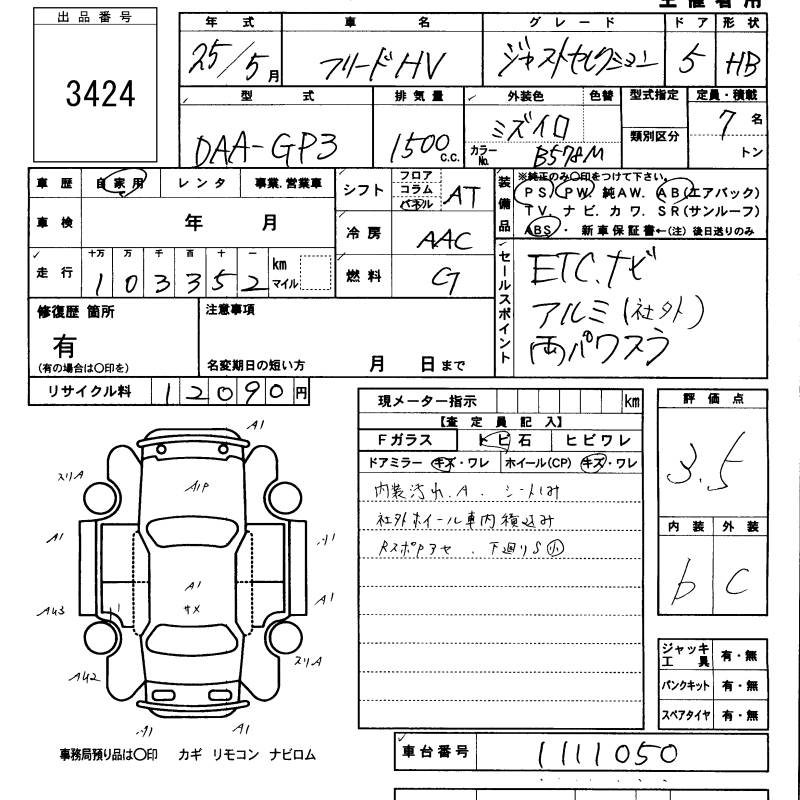 出品番号
3424
年式 車名 グレード ドア 形状
25/5月 フリードHV ジャストセレクション 5 HB
型式 排気量 外装色 色替 型式指定 定員・積載
DAA-GP3 1500c.c. ミズイロ 類別区分 7名
カラーNo. B578M トン
車歴 自家用 レンタ 事業.営業車
車検 年 月
走行 十万 万 千 百 十 一 km マイル
103352
シフト フロア コラム パネル AT
冷房 AAC
燃料 G
装備品 ※純正のみ〇印をつけて下さい。
PS) PW. 純AW. AB(エアバック)
TV. ナビ. カワ. SR(サンルーフ)
ABS ・ 新車保証書←(注) 後日送りのみ
セールスポイント
ETC.ナビ
アルミ(社外)
両パワスラ
修復歴 箇所 注意事項
有
(有の場合は〇印を) 名変期日の短い方 月 日まで
リサイクル料 12090円
現メーター指示 km
【査定員記入】
Fガラス トビ石 ヒビワレ
ドアミラー キズ・ワレ ホイール(CP) キズ・ワレ
内装汚れ.A. シートしみ
社外ホイール車内積込み
下廻りS小
評価点
3.5
内装 外装
b C
ジャッキ工具 有・無
パンクキット 有・無
スペアタイヤ 有・無
車台番号 1111050
A1
スリA
A1P
A1
A1
A1
サメ
A1
AU3
スリA
AU2
A1
A1
事務局預り品は〇印 カギ リモコン ナビロム